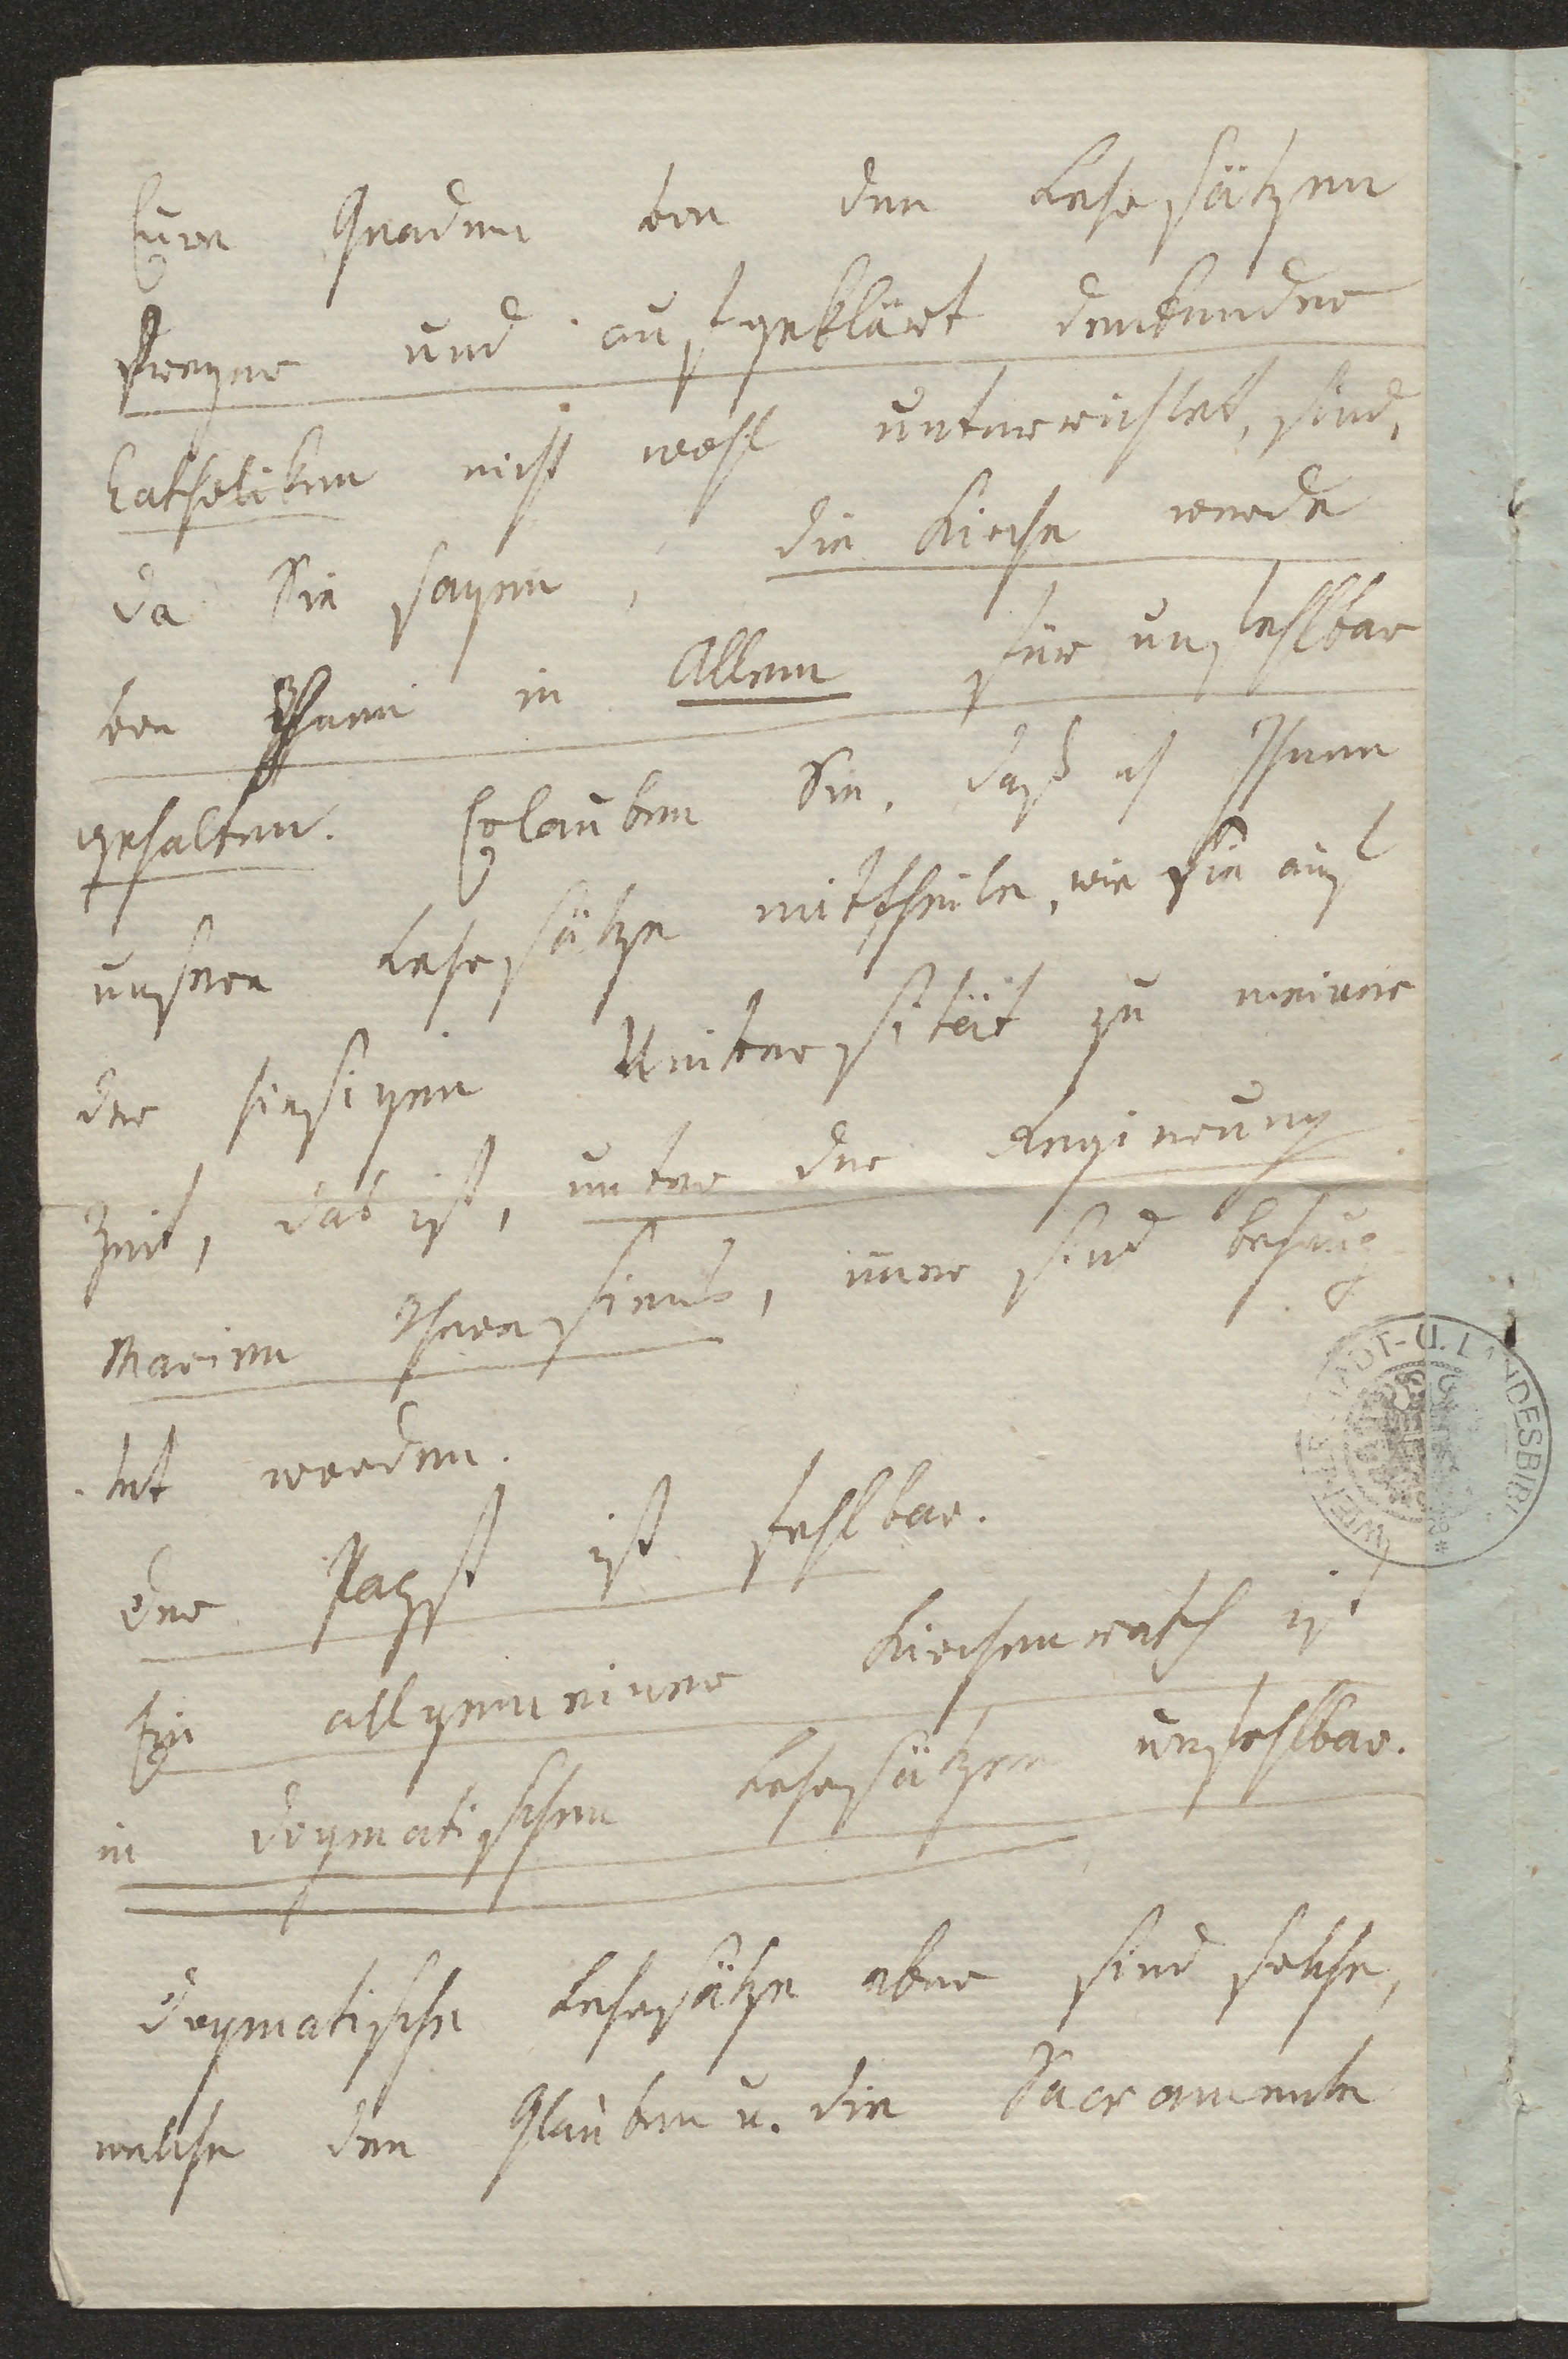 Eure Gnaden von den Lehrsätzen
freyer und aufgeklärt denkender
Catholiken nicht wohl unterrichtet, sind,
da Sie sagen, die Kirche werde
von Ihnen in Allem für unfehlbar
gehalten. Erlauben Sie, daß ich Ihnen
unsere Lehrsätze mittheile, wie sie auf
der hiesigen Universität zu meiner
Zeit, das ist, unter der Regierung
Marien Theresiens, immer sind behaup
tet worden.
Der Pabst ist fehlbar.
Ein allgemeiner Kirchenrath ist
in dogmatischen Lehrsätzen unfehlbar.
Dogmatische Lehrsätze aber sind solche,
welche den Glauben u. die Sacramente
WIENER STADT-U. LANDESBIBL.